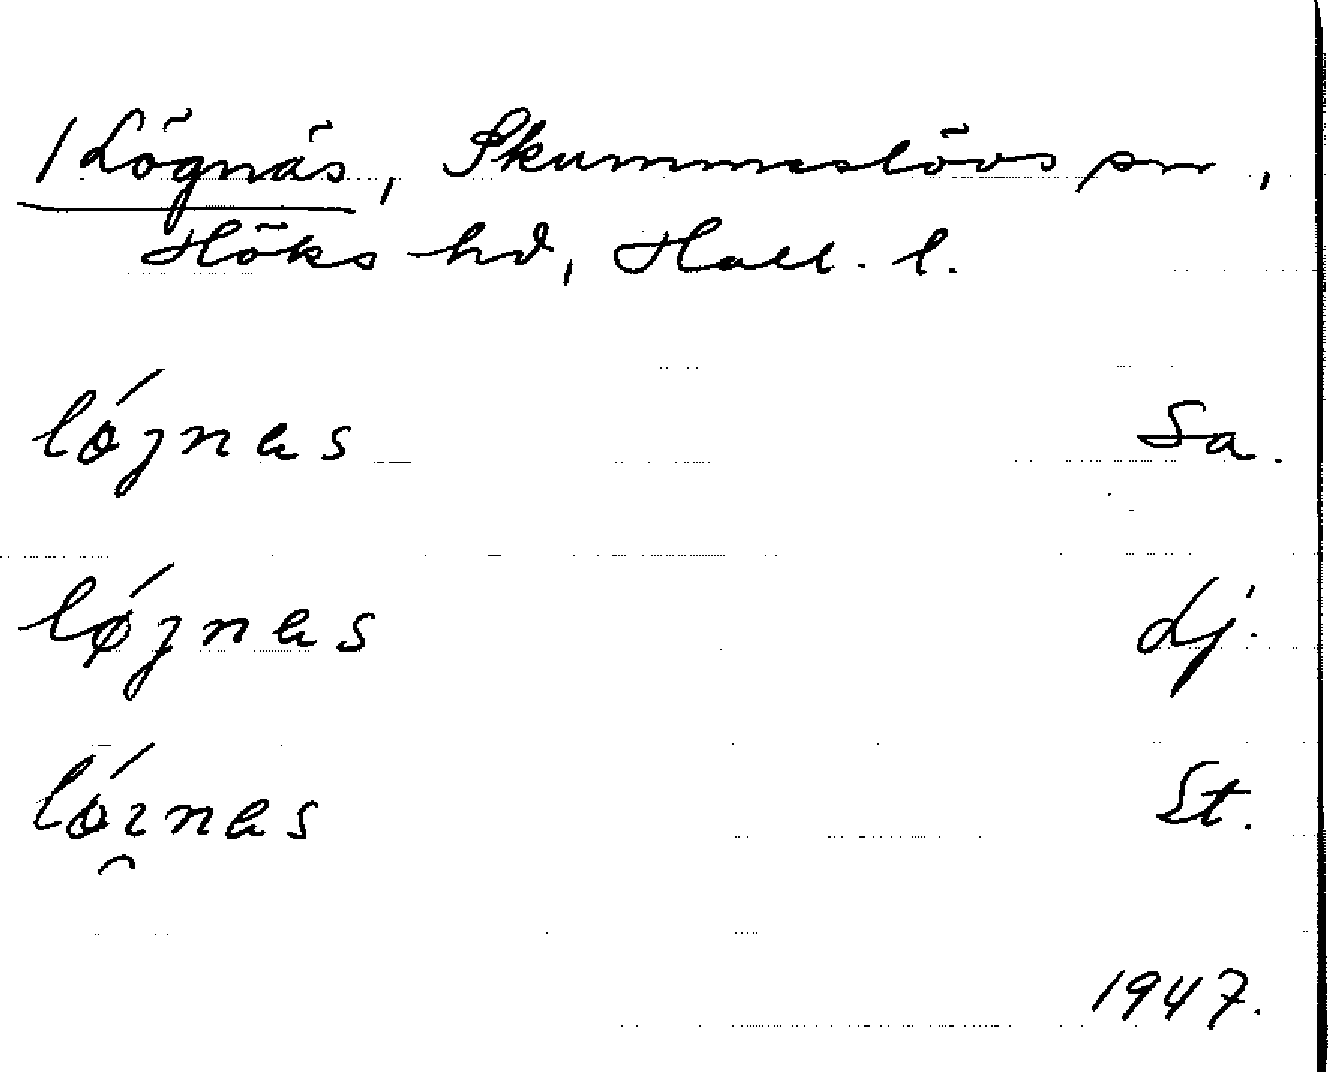 / Lögnäs, Skummeslövs sn,
Höks hd, Hall. l.
lǿjnas Sa.
lǿjnas Lj.
lǿınas St.
1947.